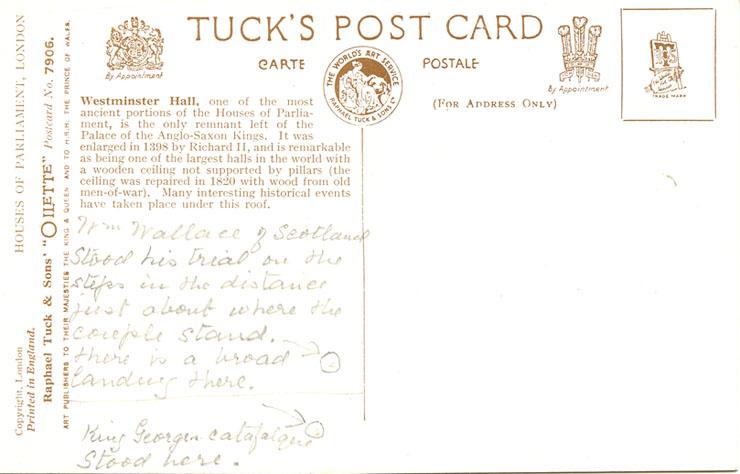 TUCK'S POST CARD
CARTE POSTALE
By Appointment
THE WORLD'S ART SERVICE
RAPHAEL TUCK & SONS LTD
By Appointment
(FOR ADDRESS ONLY)
TRADE MARK
Westminster Hall, one of the most
ancient portions of the Houses of Parlia-
ment, is the only remnant left of the
Palace of the Anglo-Saxon Kings. It was
enlarged in 1398 by Richard II, and is remarkable
as being one of the largest halls in the world with
a wooden ceiling not supported by pillars (the
ceiling was repaired in 1820 with wood from old
men-of-war). Many interesting historical events
have taken place under this roof.
Wm Wallace of Scotland
Stood his trial on the
steps in the distance
just about where the
couple stand.
there is a broad
landing there.
King Georges catafalque
Stood here.
HOUSES OF PARLIAMENT, LONDON
Copyright, London
Printed in England.
Raphael Tuck & Sons' "OILETTE" Postcard No. 7906.
ART PUBLISHERS TO THEIR MAJESTIES THE KING & QUEEN AND TO H.R.H. THE PRINCE OF WALES.